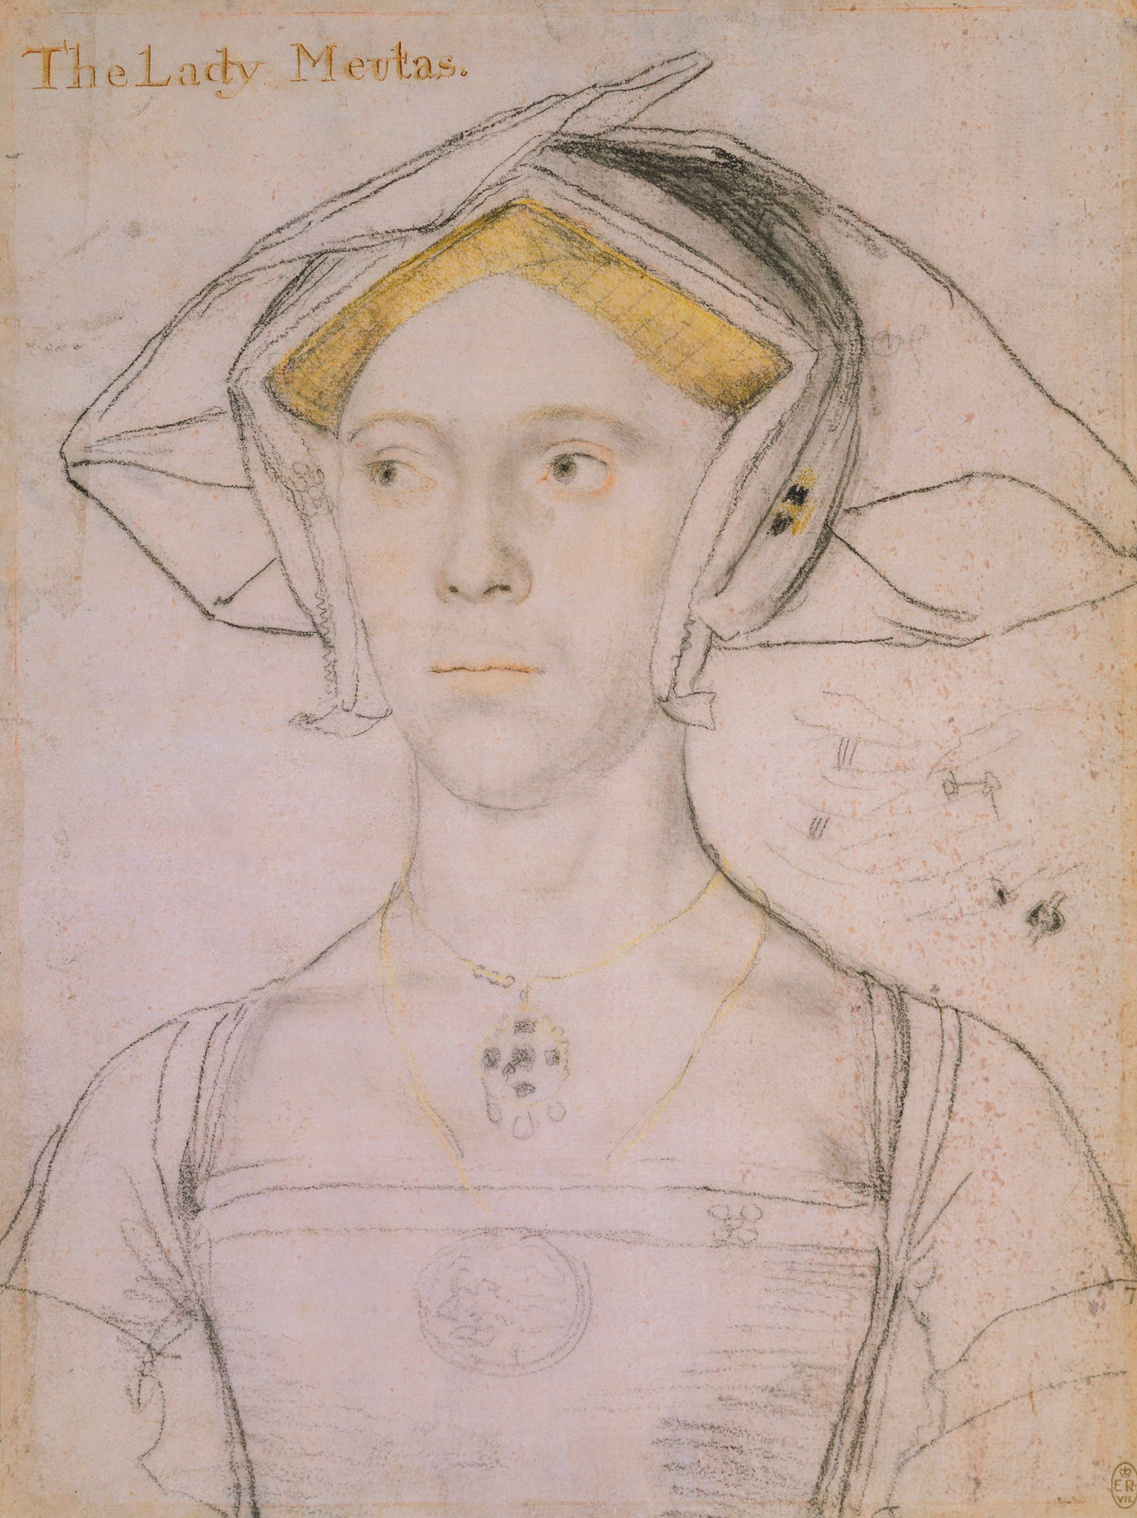 The Lady Meutas.
ER
VII